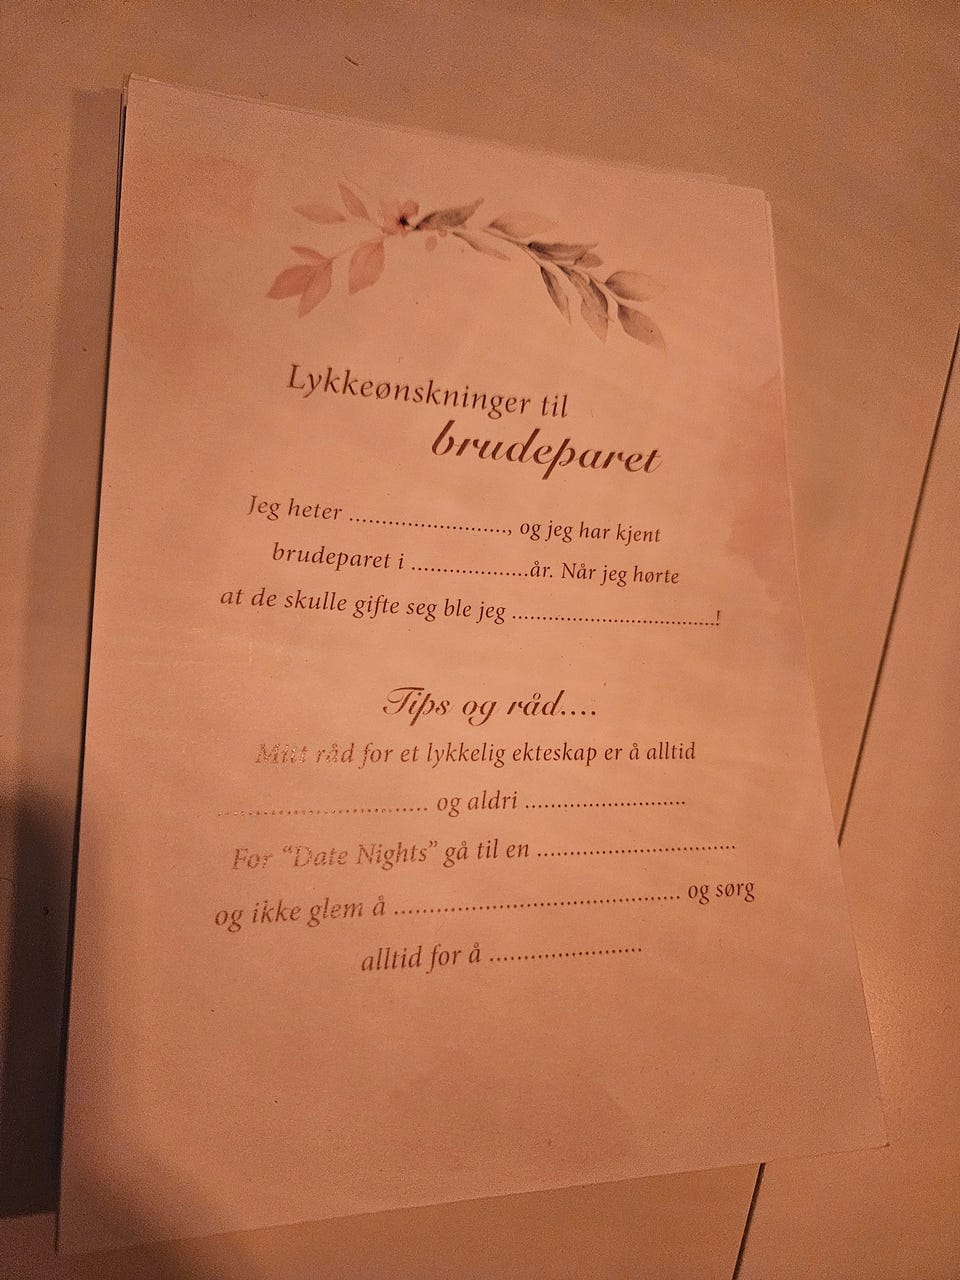 Lykkeønskninger til
brudeparet
Jeg heter ........................., og jeg har kjent
brudeparet i ..................år. Når jeg hørte
at de skulle gifte seg ble jeg .................................!
Tips og råd....
Mitt råd for et lykkelig ekteskap er å alltid
................................. og aldri .........................
For “Date Nights” gå til en ...............................
og ikke glem å ............................................. og sørg
alltid for å ........................